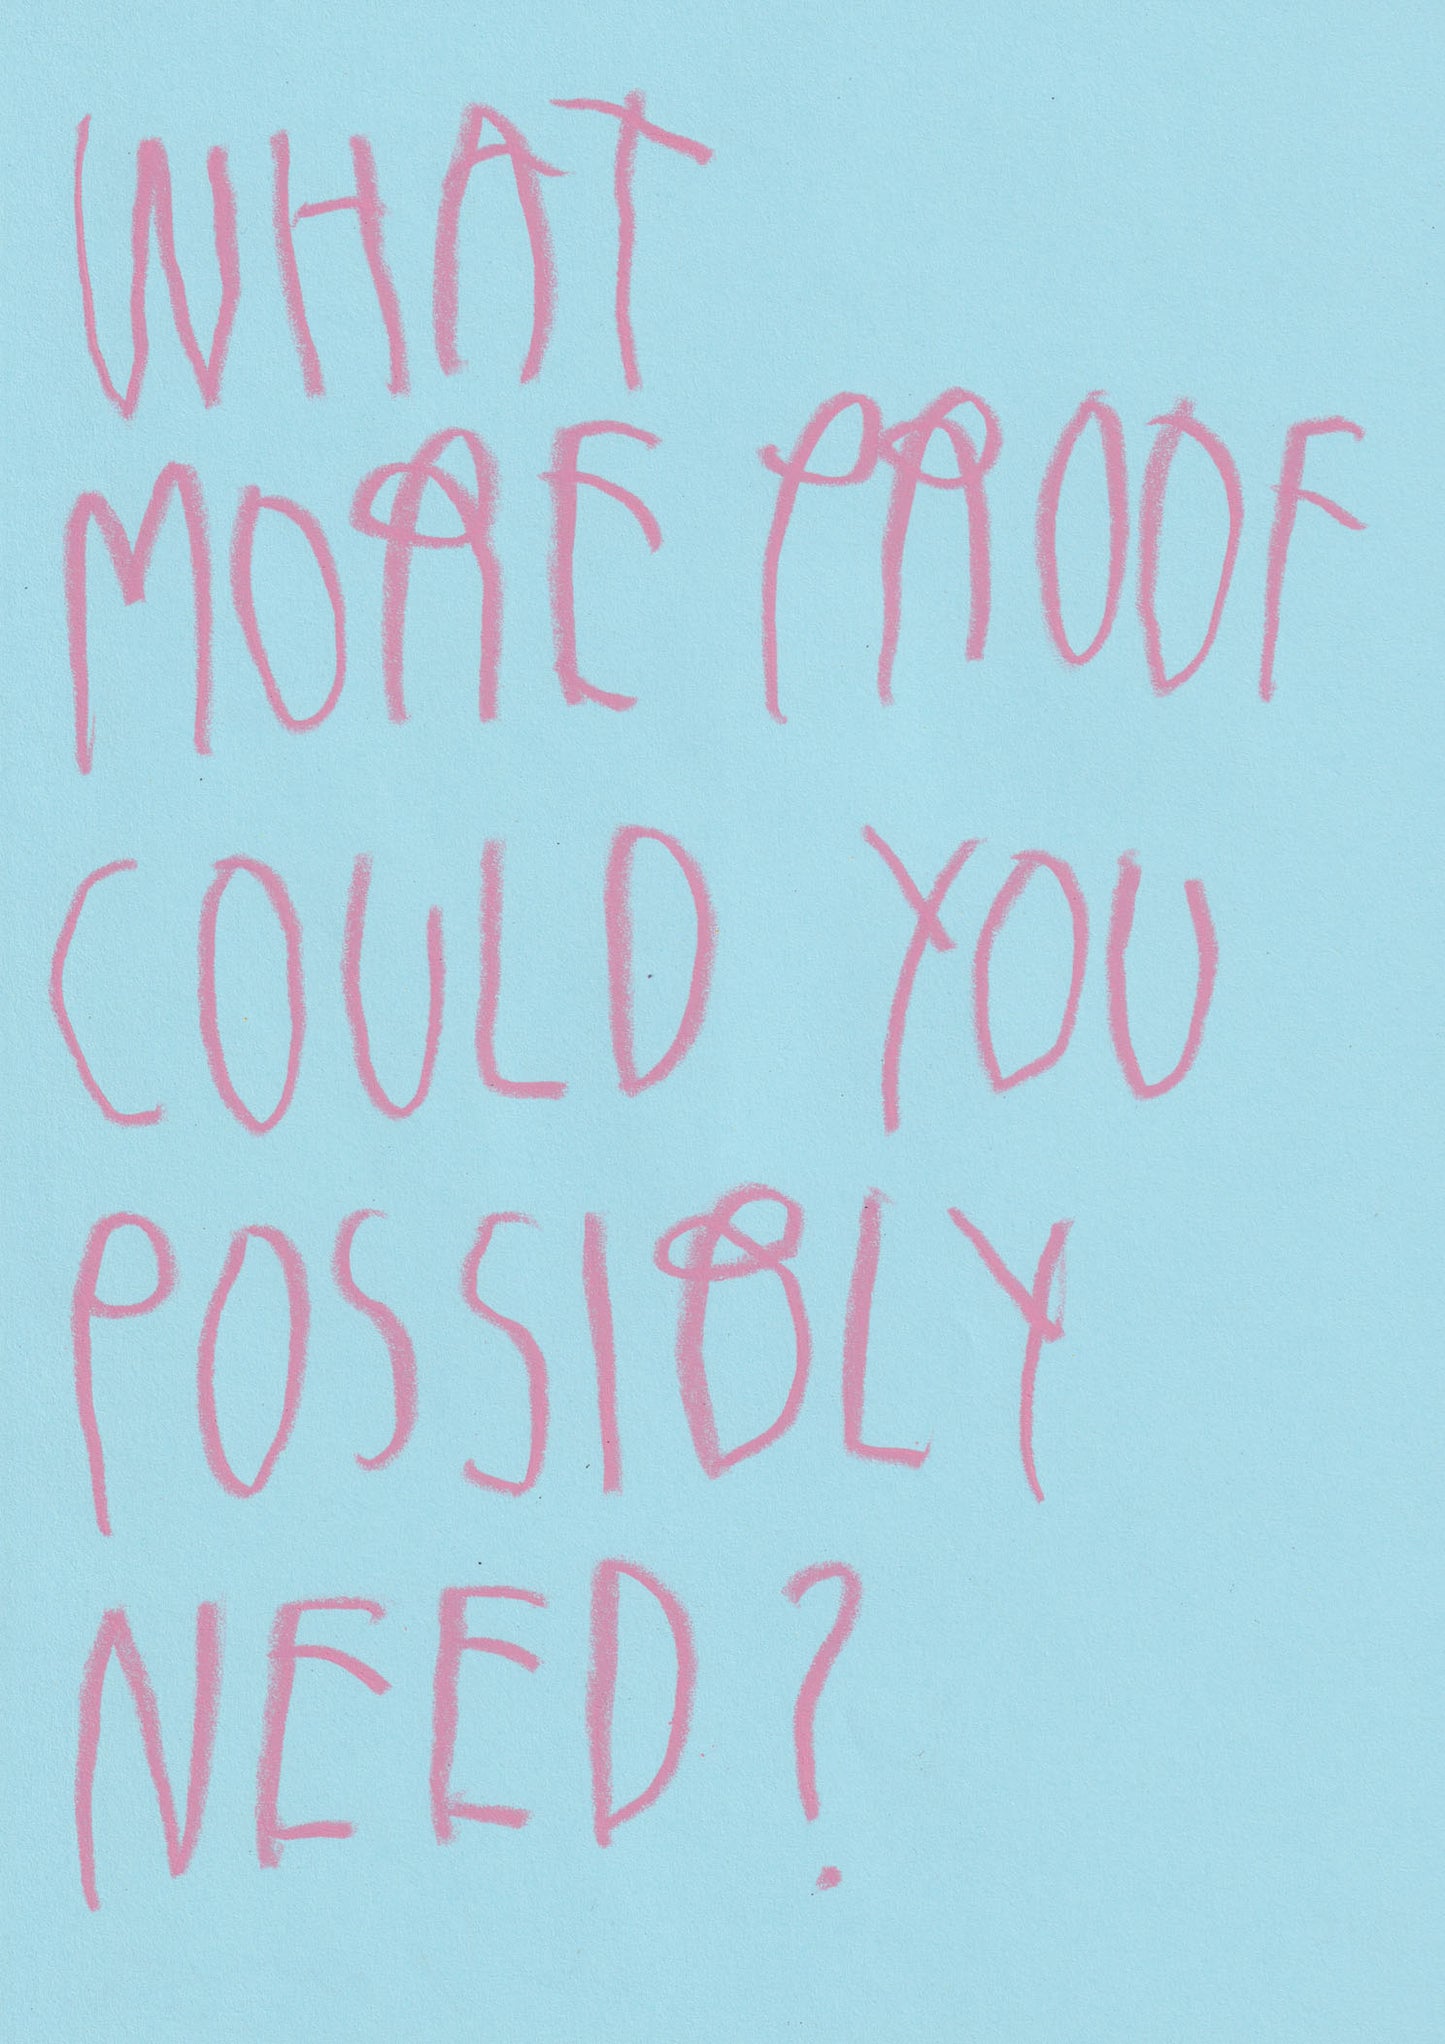 WHAT
MORE PROOF
COULD YOU
POSSIBLY
NEED?